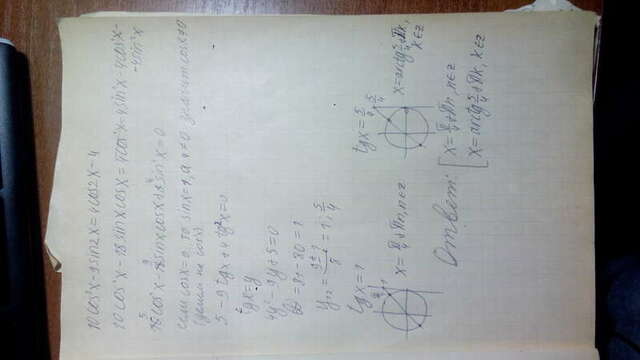 10cos²x-9sin2x=4cos2x-4
10cos²x-18sinxcosx=4cos²x-4sin²x-4cos²x-
-4sin²x
5 9
10cos²x-18sinxcosx+8sin²x=0
если cosx=0, то sinx=1, а 4≠0 значит cosx≠0
(делим на cos²x)
5-9tgx+4tg²x=0
tgx=y
4y²-9y+5=0
D=81-80=1
y₁₂=(9±1)/8=1; 5/4
tgx=1 tgx=5/4
π/4 1 5/4
x=π/4+πn, n∈z x=arctg5/4+πk,
k∈z
Ответ: [x=π/4+πn, n∈z
x=arctg5/4+πk, k∈z